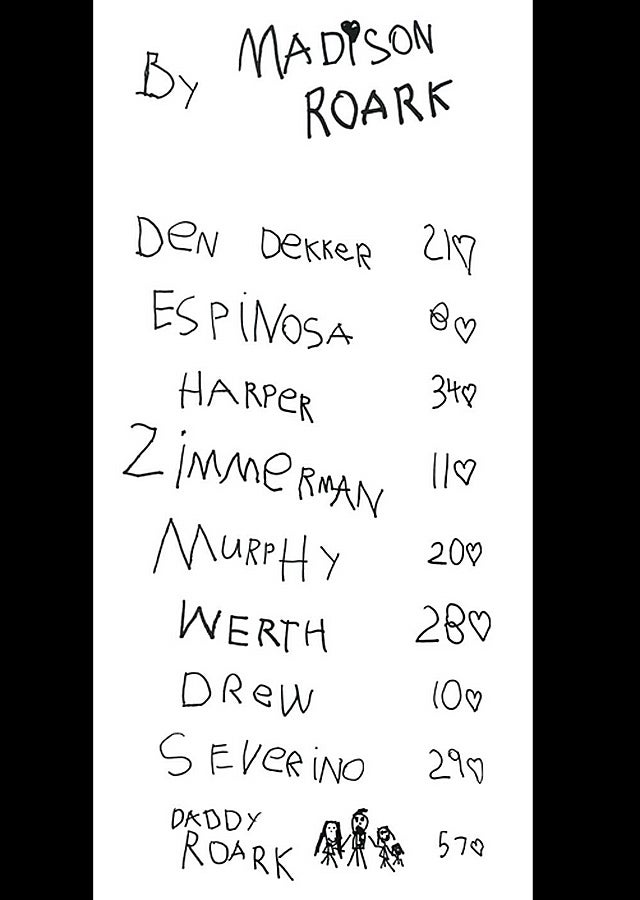 By MADiSON
ROARK
DeN DeKKeR 21♡
ESPiNOSA 8♡
HARPeR 34♡
ZiMMeRMAN 11♡
MURPHY 20♡
WERTH 28♡
DReW 10♡
SEVeRiNO 29♡
DADDY
ROARK 57♡